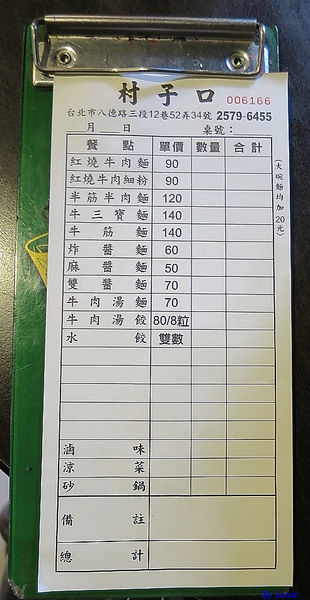 村子口 006166
台北市八德路三段12巷52弄34號 2579-6455
月 日 桌號：
餐點 單價 數量 合計
紅燒牛肉麵 90
紅燒牛肉細粉 90
半筋半肉麵 120
牛三寶麵 140
牛筋麵 140
炸醬麵 60
麻醬麵 50
雙醬麵 70
牛肉湯麵 70
牛肉湯餃 80/8粒
水餃 雙數
滷味
涼菜
砂鍋
備註
總計
(大碗麵均加20元)